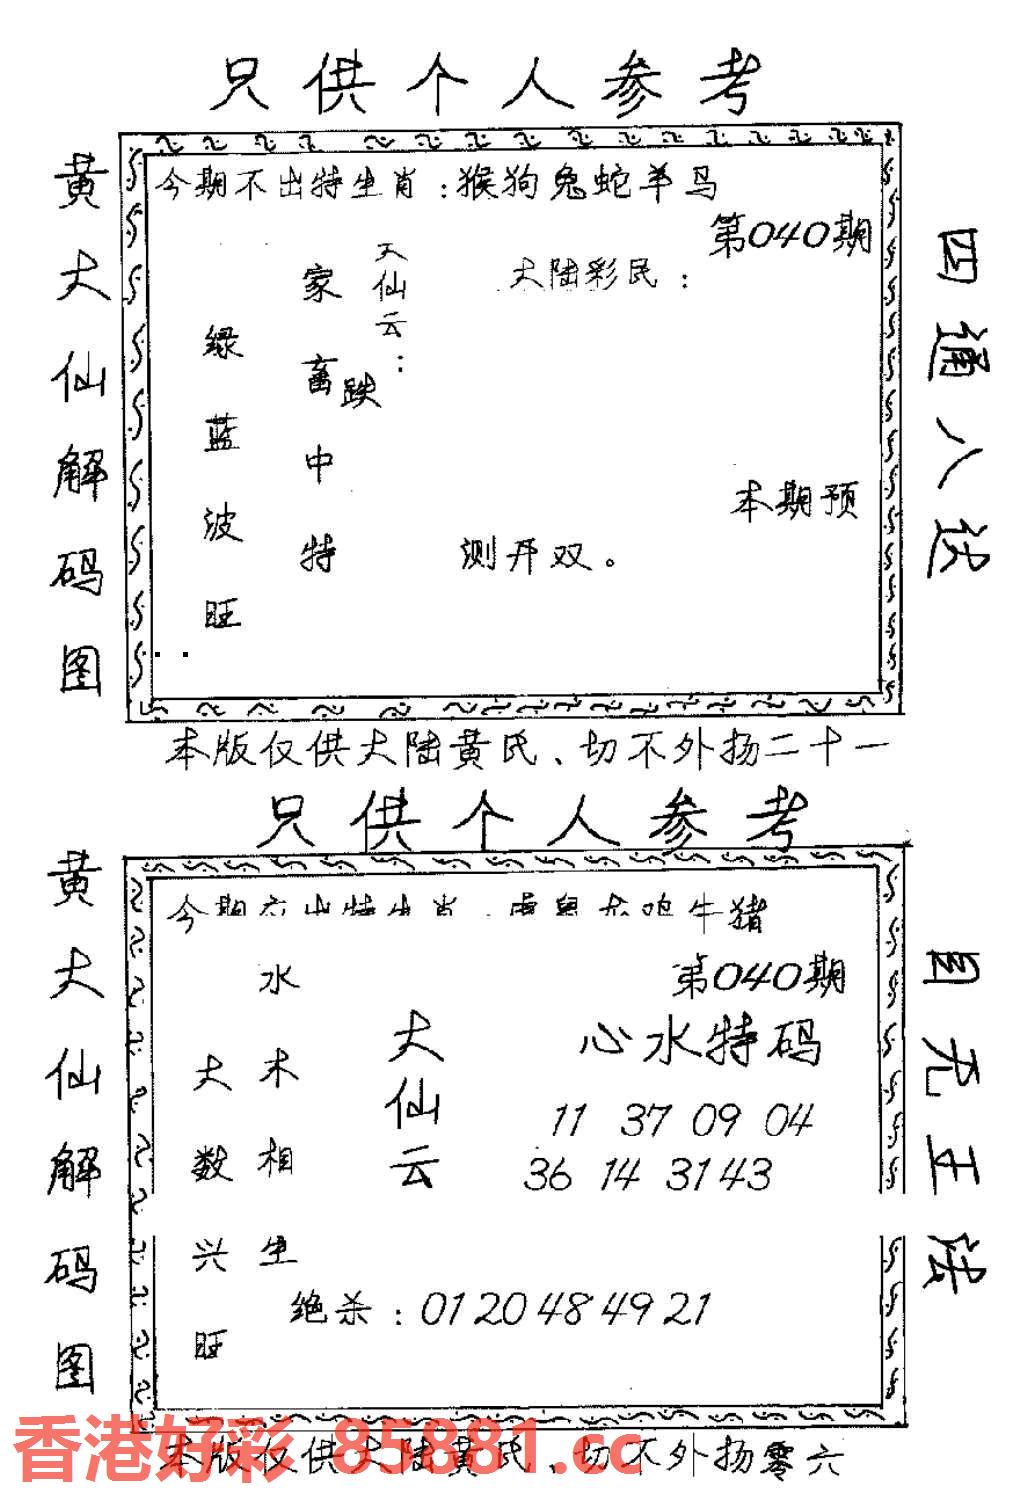 只供个人参考
黄大仙解码图
今期不出特生肖：猴狗兔蛇羊马
第040期
大陆彩民：
天仙云：
跌
家畜中特
绿蓝波旺
本期预
测开双。
四通八达
本版仅供大陆黄氏、切不外扬二十一
只供个人参考
黄大仙解码图
今期 出特生肖 虎鼠龙鸡牛猪
第040期
心水特码
大仙云
11 37 09 04
36 14 31 43
水木相生
大数兴旺
绝杀：01 20 48 49 21
目无王法
本版仅供大陆黄氏、切不外扬零六
香港好彩 85881.cc